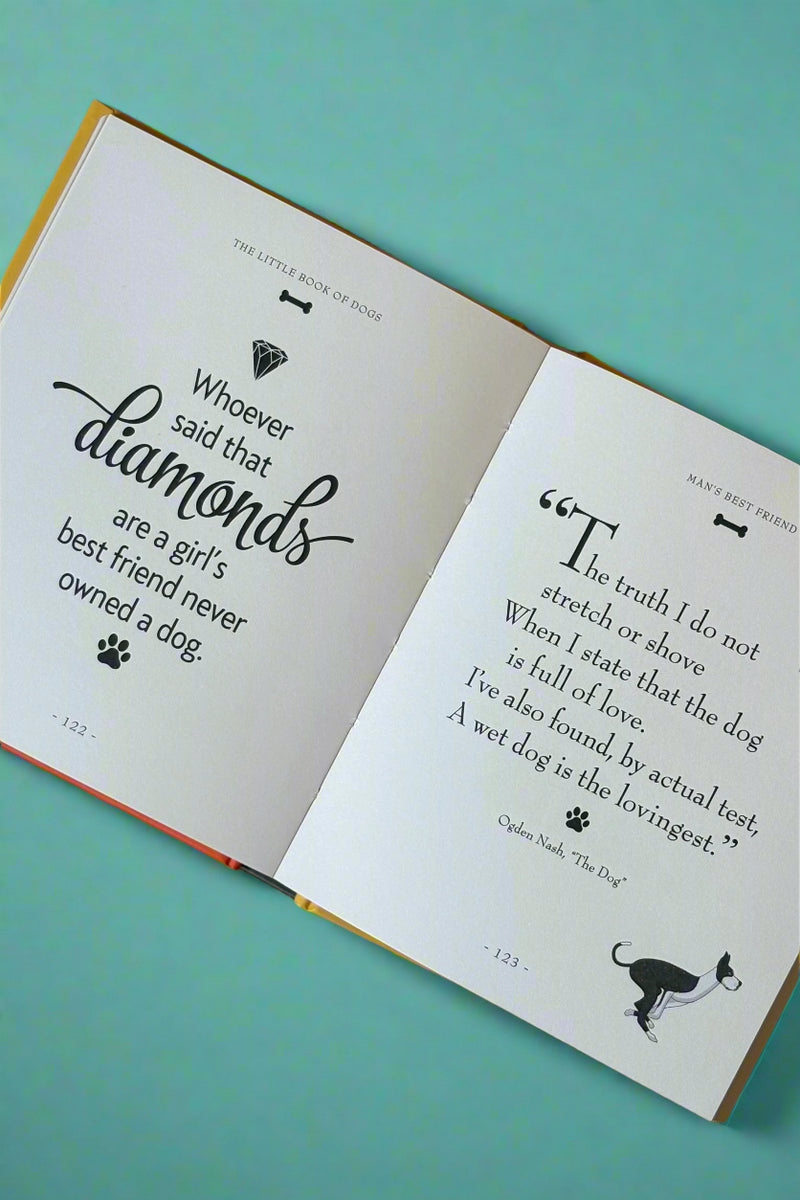 THE LITTLE BOOK OF DOGS
Whoever
said that
diamonds
are a girl's
best friend never
owned a dog.
- 122 -
MAN'S BEST FRIEND
“The truth I do not
stretch or shove
When I state that the dog
is full of love.
I've also found, by actual test,
A wet dog is the lovingest.”
Ogden Nash, “The Dog”
- 123 -